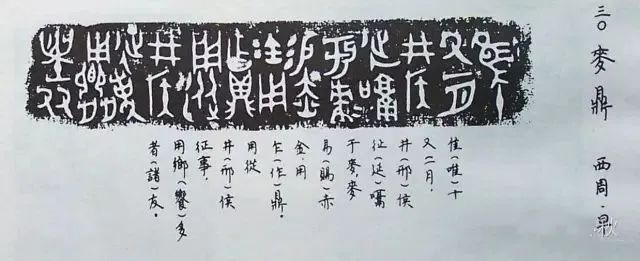 三〇 麥鼎 西周·早
隹(唯)十
又二月，
井(邢)侯
征(延)嘯
于麥，麥
易(賜)赤
金，用
乍(作)鼎。
用從
井(邢)侯
征事，
用鄉(饗)多
者(諸)友。